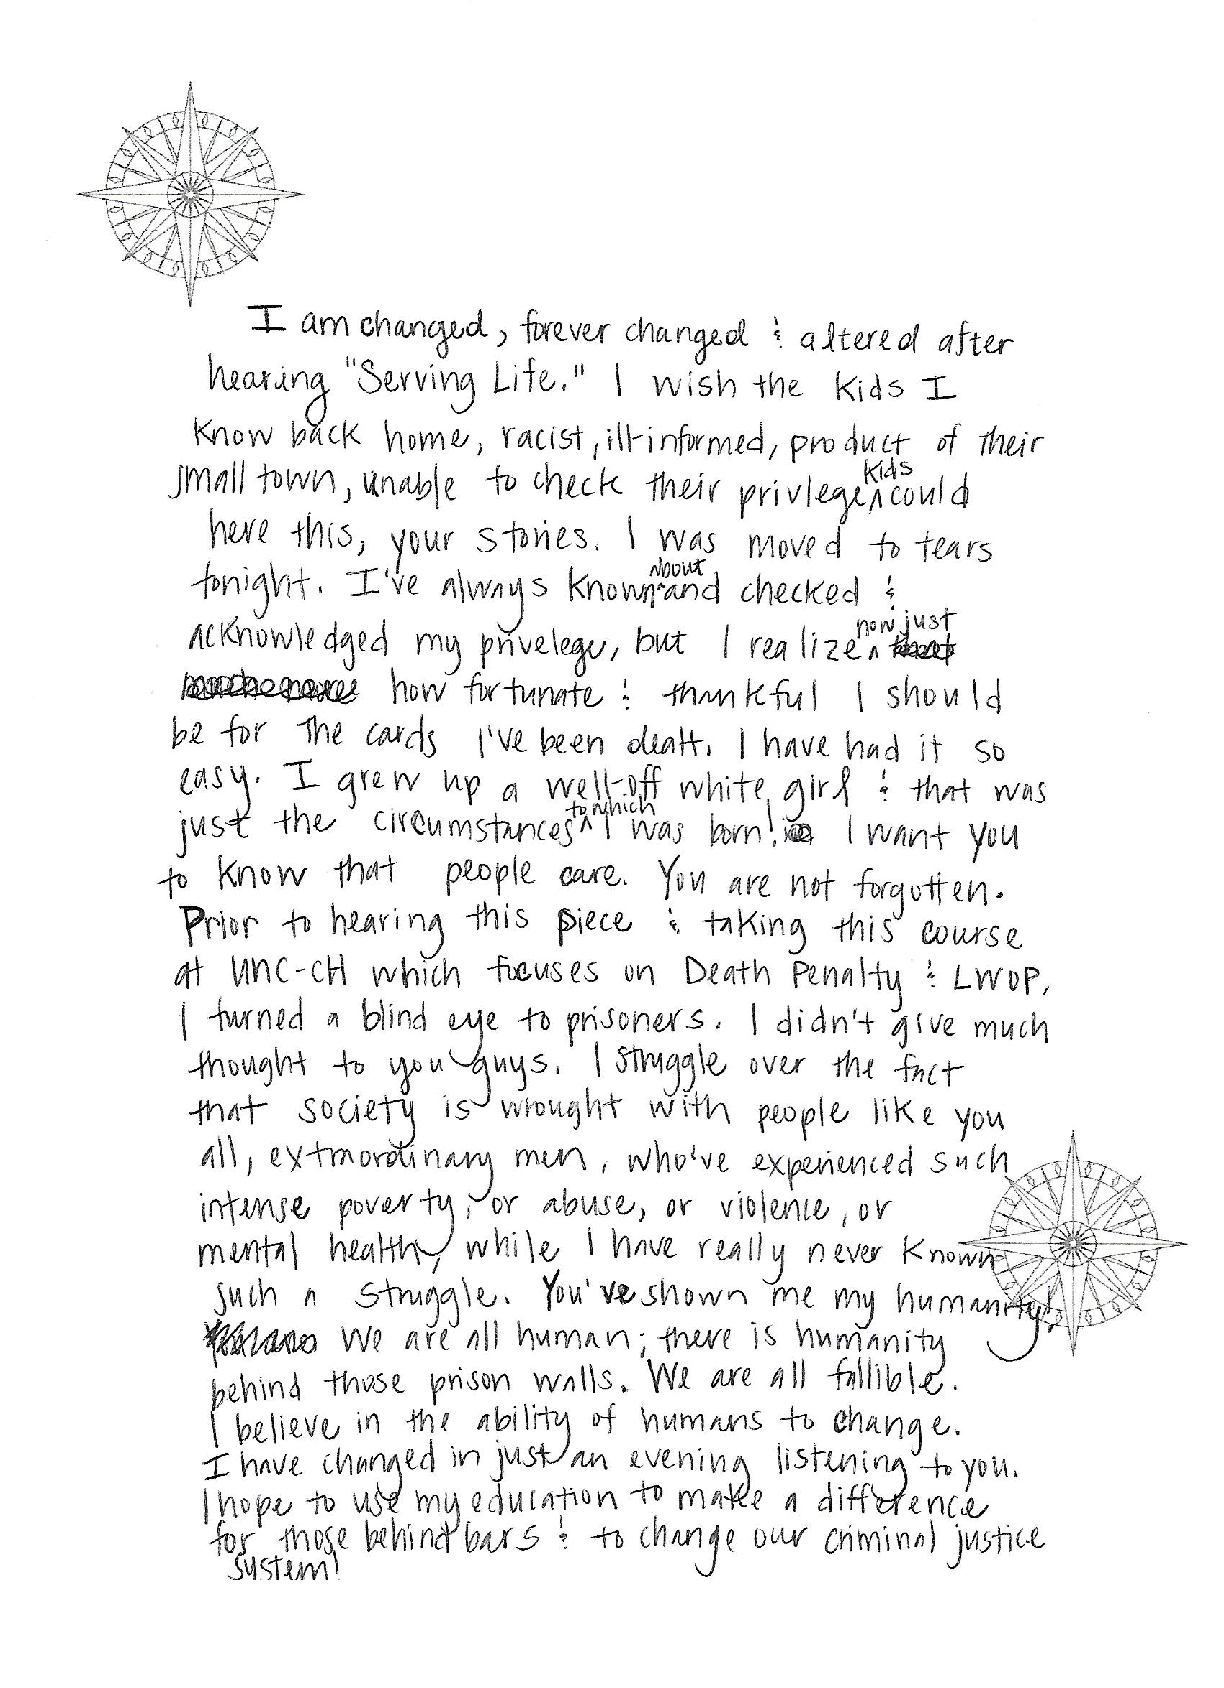 I am changed, forever changed & altered after
hearing "Serving Life." I wish the kids I
know back home, racist, ill-informed, product of their
small town, unable to check their privlege, kids could
here this, your stories. I was moved to tears
tonight. I've always known about and checked &
acknowledged my privelege, but I realize now just
how fortunate & thankful I should
be for the cards I've been dealt. I have had it so
easy. I grew up a well-off white girl & that was
just the circumstances to which I was born! I want you
to know that people care. You are not forgotten.
Prior to hearing this piece & taking this course
at UNC-CH which focuses on Death Penalty & LWOP,
I turned a blind eye to prisoners. I didn't give much
thought to you guys. I struggle over the fact
that society is wrought with people like you
all, extraordinary men, who've experienced such
intense poverty, or abuse, or violence, or
mental health, while I have really never known
such a struggle. You've shown me my humanity!
We are all human; there is humanity
behind those prison walls. We are all fallible.
I believe in the ability of humans to change.
I have changed in just an evening listening to you.
I hope to use my education to make a difference
for those behind bars & to change our criminal justice
system!